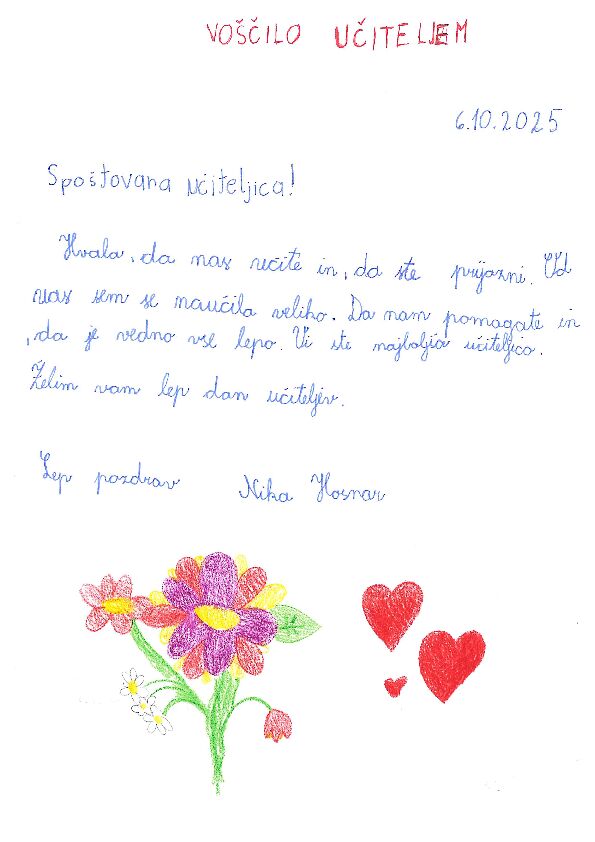 VOŠČILO UČITELJEM
6.10.2025
Spoštovana učiteljica!
Hvala, da nas učite in, da ste prijazni. Od
vas sem se naučila veliko. Da nam pomagate in
, da je vedno vse lepo. Vi ste najboljša učiteljica.
Želim vam lep dan učiteljev.
Lep pozdrav Nika Hosnar